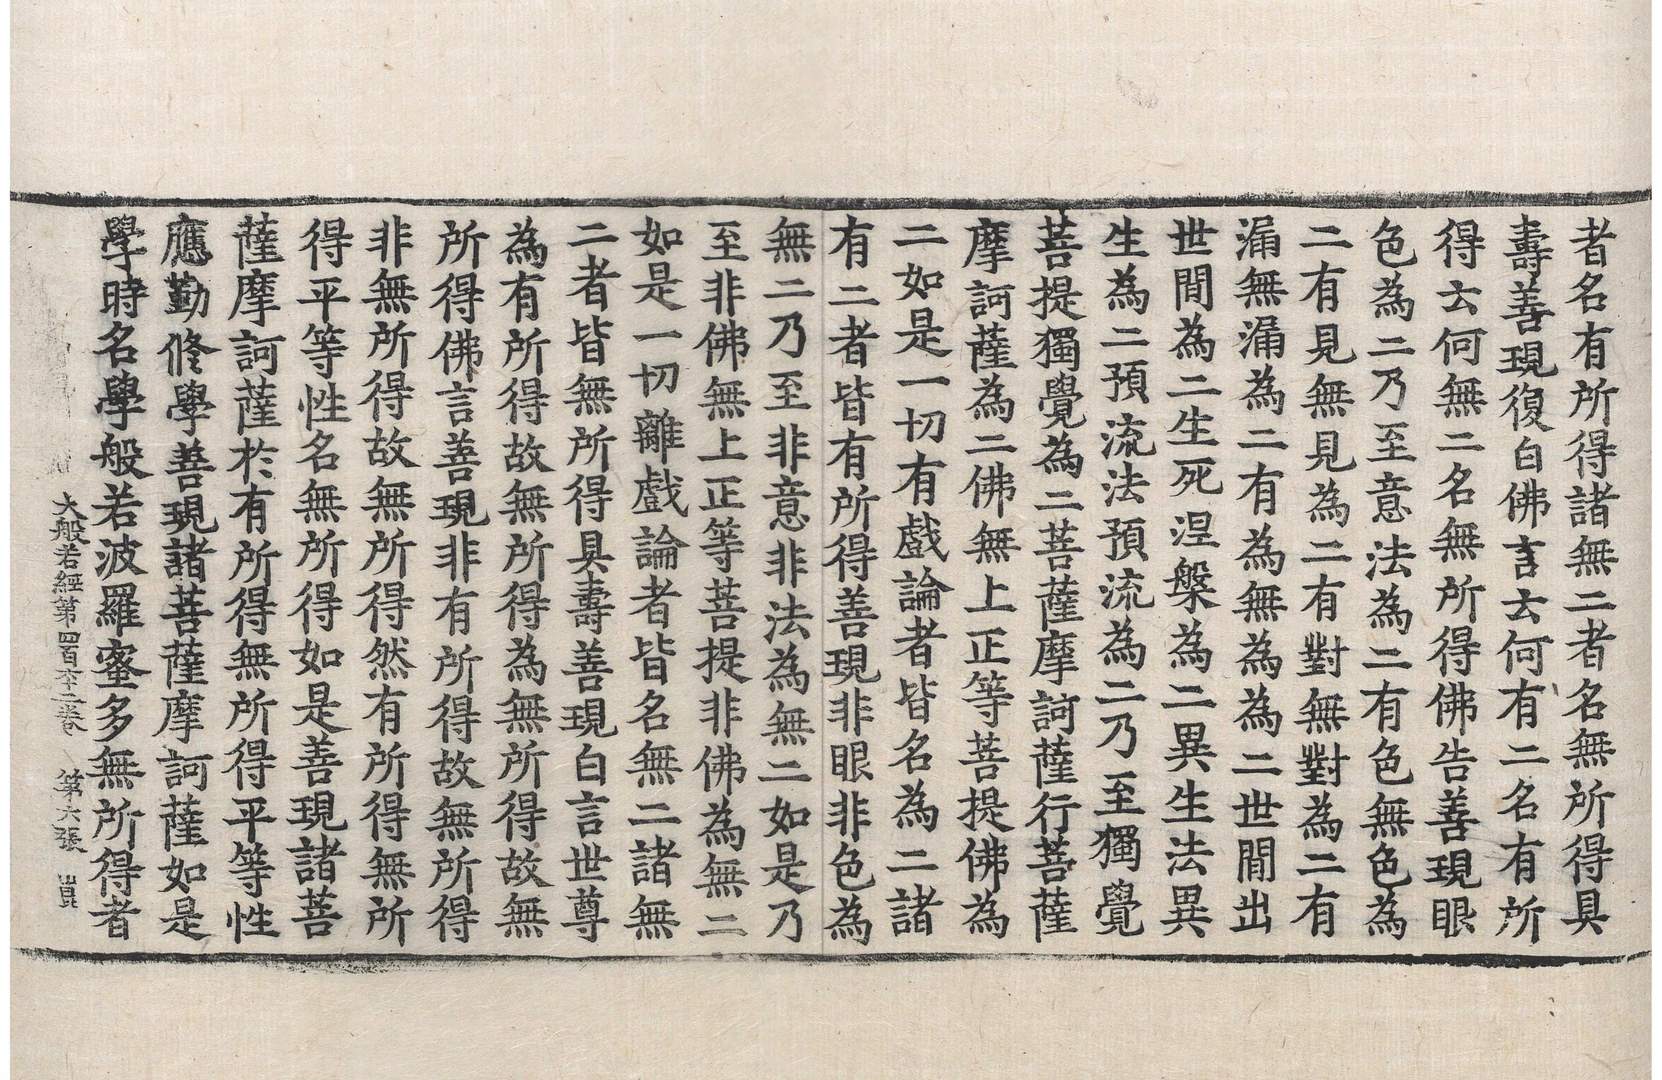 者名有所得諸無二者名無所得具
壽善現復白佛言云何有二名有所
得云何無二名無所得佛告善現眼
色為二乃至意法為二有色無色為
二有見無見為二有對無對為二有
漏無漏為二有為無為為二世間出
世間為二生死涅槃為二異生法異
生為二預流法預流為二乃至獨覺
菩提獨覺為二菩薩摩訶薩行菩薩
摩訶薩為二佛無上正等菩提佛為
二如是一切有戲論者皆名為二諸
有二者皆有所得善現非眼非色為
無二乃至非意非法為無二如是乃
至非佛無上正等菩提非佛為無二
如是一切離戲論者皆名無二諸無
二者皆無所得具壽善現白言世尊
為有所得故無所得為無所得故無
所得佛言善現非有所得故無所得
非無所得故無所得然有所得無所
得平等性名無所得如是善現諸菩
薩摩訶薩於有所得無所得平等性
應勤修學善現諸菩薩摩訶薩如是
學時名學般若波羅蜜多無所得者
大般若經第四百六十二卷 第六張